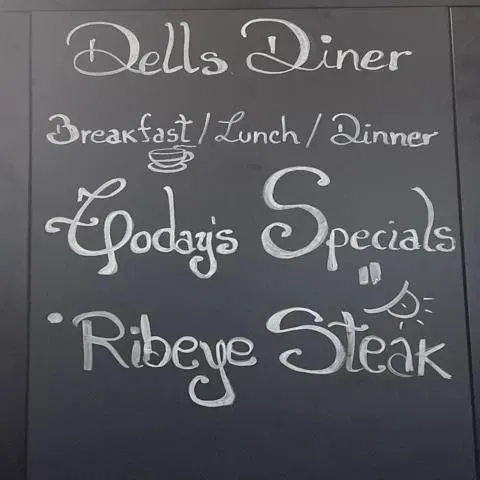 Dells Diner
Breakfast / Lunch / Dinner
Today's Specials
• Ribeye Steak